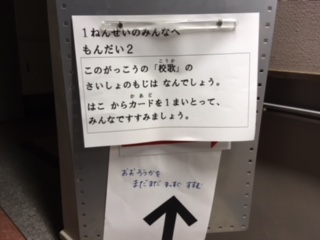 1ねんせいのみんなへ
もんだい2
このがっこうの「校歌」の
こうか
さいしょのもじは なんでしょう。
はこ からカードを1まいとって、
かあど
みんなですすみましょう。
おおろうかを
まだまだ まっすぐ すすむ